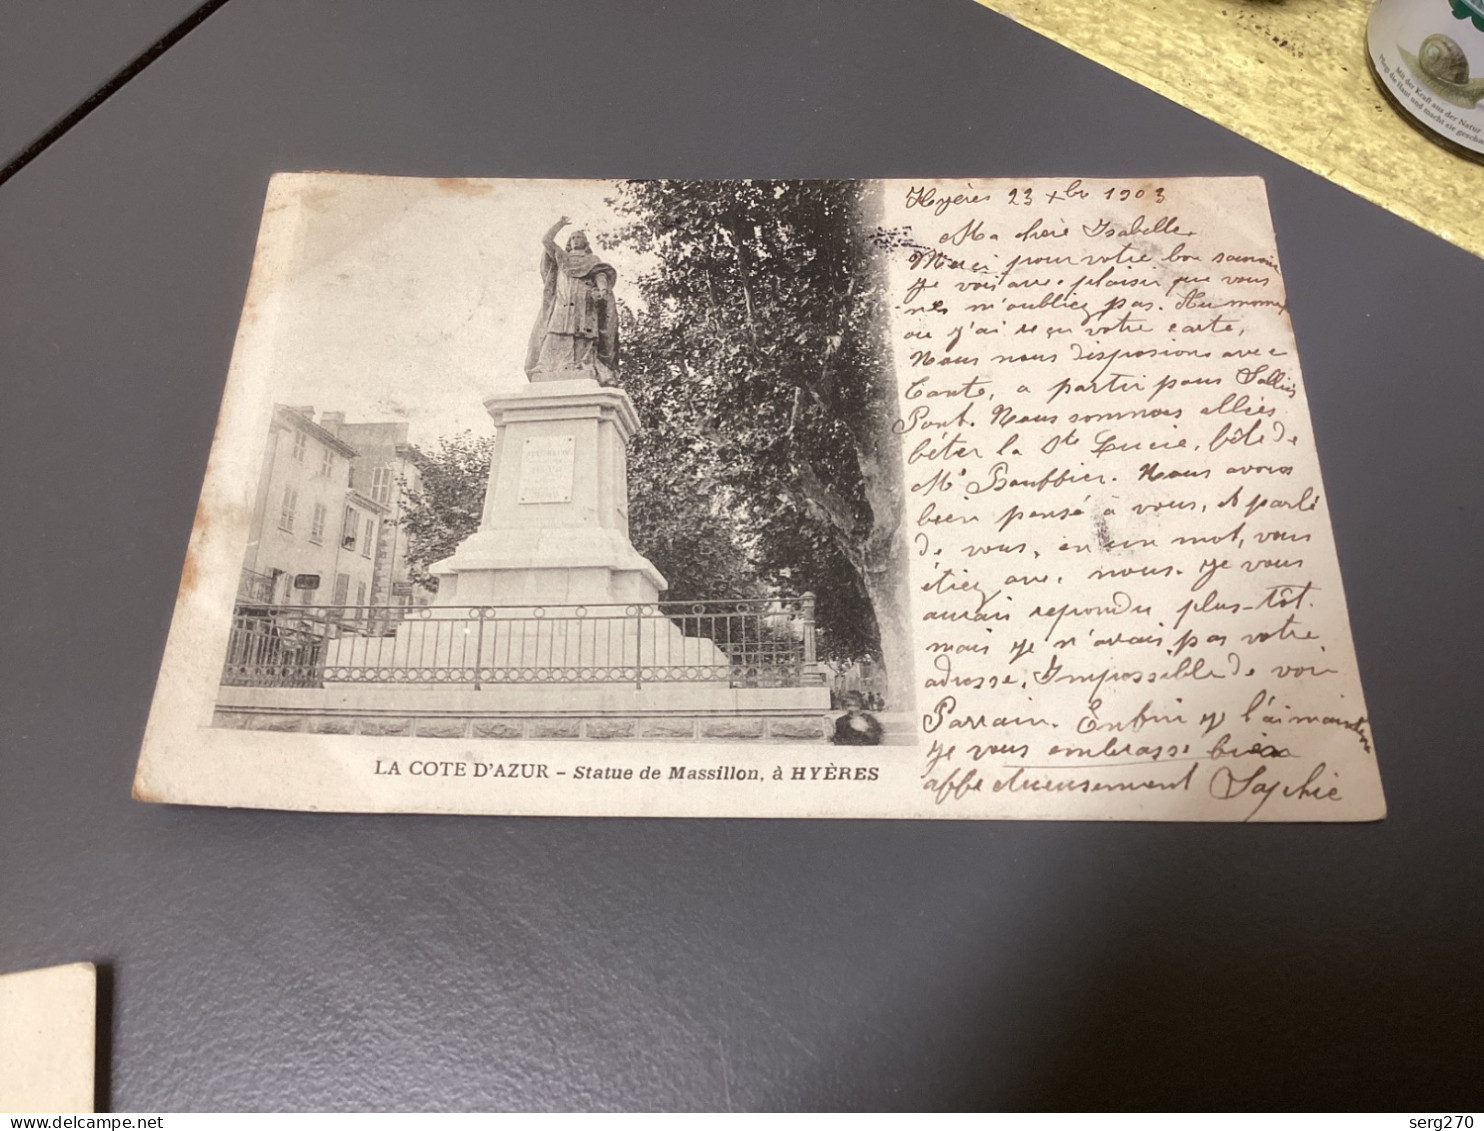 Hyères 23 xbre 1903
Ma chère Isabelle.
Merci pour votre bon souvenir
je vois avec plaisir que vous
ne m'oubliez pas. Au moment
où j'ai reçu votre carte,
Nous nous disposions avec
Tante, à partir pour Solliès
Pont. Nous sommes allées
fêter la Ste Lucie, fête de
Me Bouffier. Nous avons
bien pensé à vous, et parlé
de vous, en un mot, vous
étiez avec nous. Je vous
aurais repondu plus-tôt.
mais je n'avais pas votre
adresse. Impossible de voir
Parrain. Enfin je l'ai maintenant
je vous embrasse bien
affectueusement Sophie
LA COTE D'AZUR – Statue de Massillon, à HYÈRES
Mit der Kraft aus der Natur
Pflegt die Haut und macht sie geschm
delcampe.net
serg270